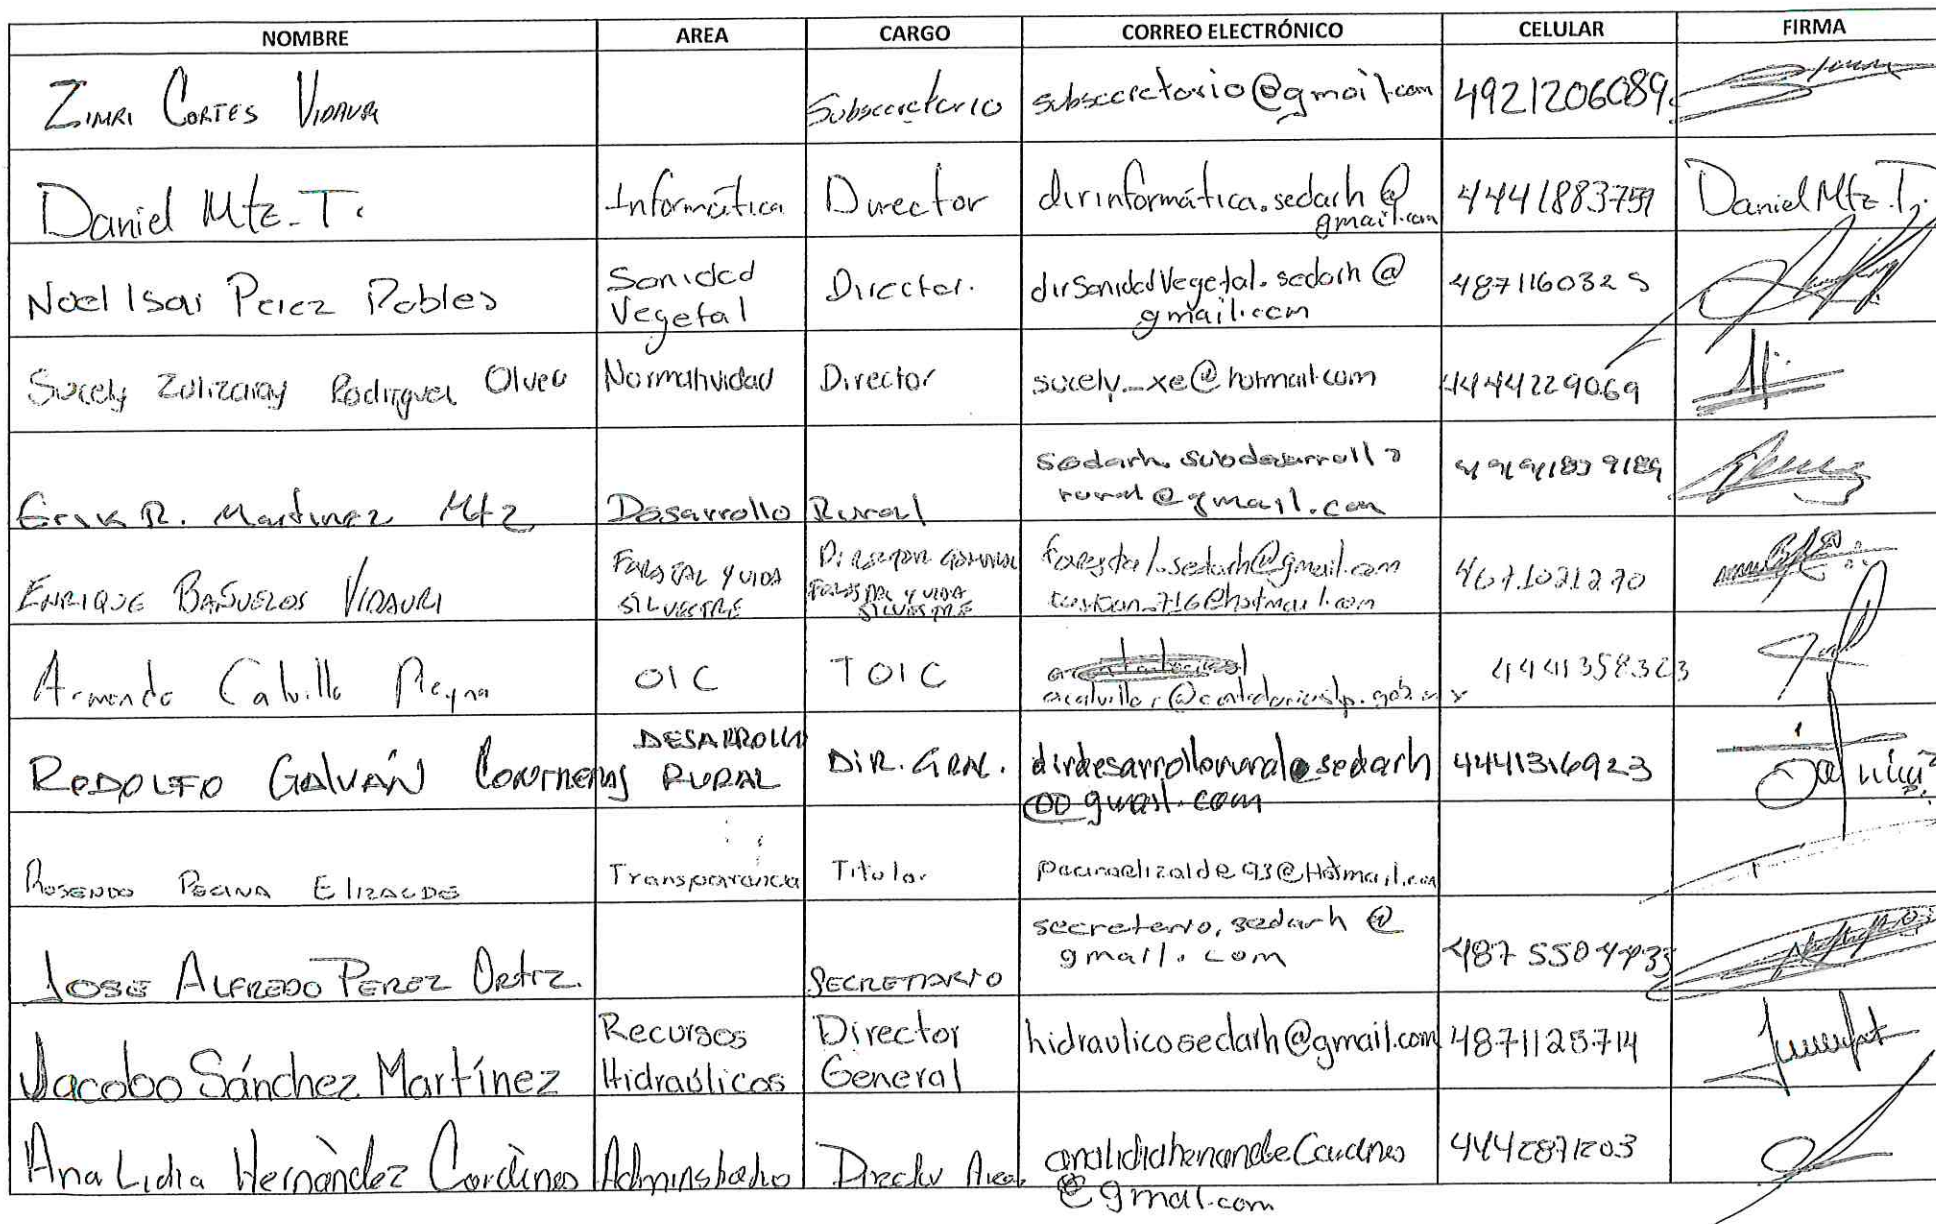 NOMBRE AREA CARGO CORREO ELECTRÓNICO CELULAR FIRMA
Zimri Cortes Vidauri Subsecretario subsecretario@gmail.com 4921206089
Daniel Mtz. T. Informática Director dirinformática.sedarh@ gmail.com 4441883759 Daniel Mtz. T.
Noel Isai Perez Robles Sanidad Vegetal Director. dirSanidadVegetal.sedarh@ gmail.com 4871160325
Sucely Zulizaray Rodriguez Olvera Normatividad Director sucely_xe@hotmail.com 4444229069
Erik R. Martinez Mtz Desarrollo Rural sedarh.subdesarrollo rural@gmail.com
ENRIQUE BAÑUELOS VIDAURI FORESTAL Y VIDA SILVESTRE DIRECTOR GENERAL FORESTAL Y VIDA SILVESTRE forestal.sedarh@gmail.com 4671021270
Armando Calvillo Reyna OIC TOIC 4441358323
RODOLFO GALVÁN CONTRERAS DESARROLLO RURAL DIR. GRAL. dirdesarrollorural@sedarh @gmail.com 4441316923
ROSENDO PECINA ELIZALDE Transparencia Titular pecinaelizalde93@Hotmail.com
JOSE ALFREDO PEREZ ORTIZ. SECRETARIO secretario.sedarh@ gmail.com 487 5504733
Jacobo Sánchez Martínez Recursos Hidraúlicos Director General hidraulicosedarh@gmail.com 4871125714
Ana Lidia Hernández Cardenas Administrativo Director Area @gmail.com 4442871203